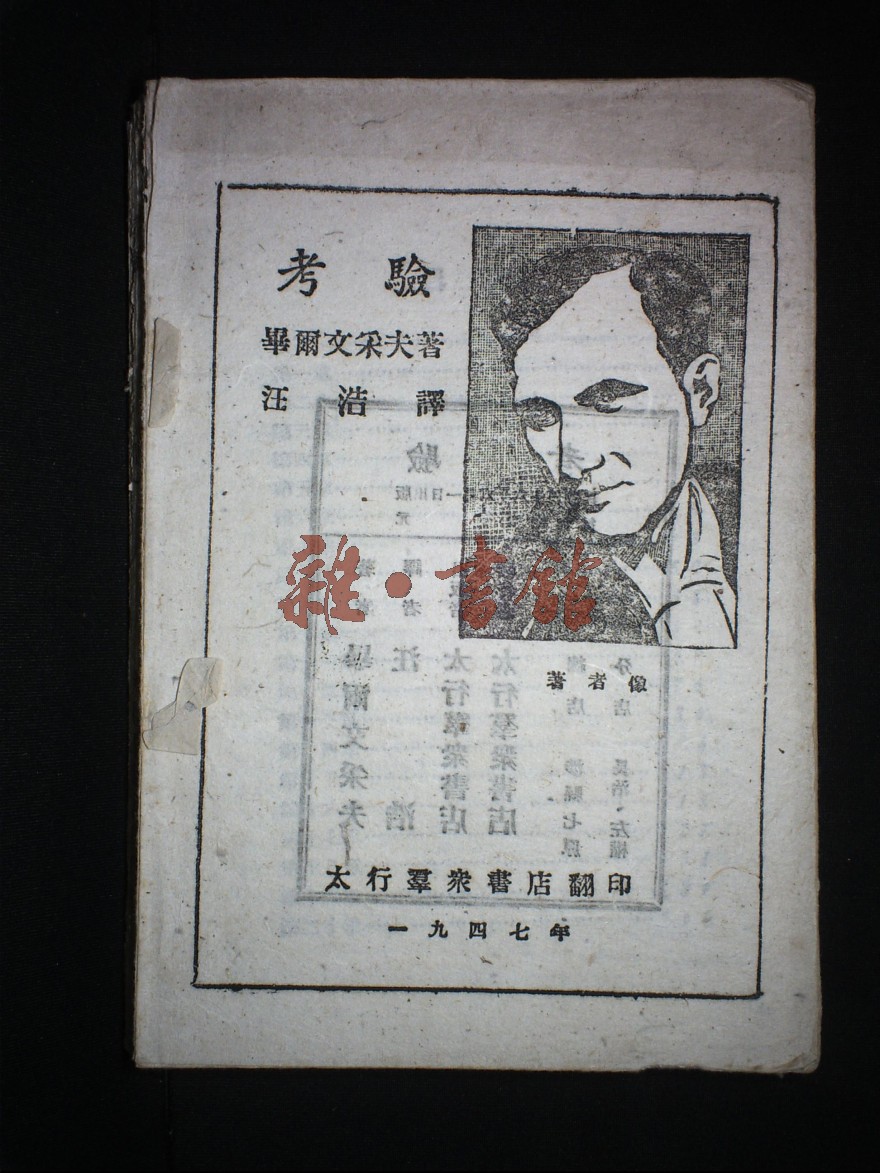 考驗
畢爾文采夫著
汪浩譯
著者像
太行羣衆書店翻印
一九四七年
雜·書館